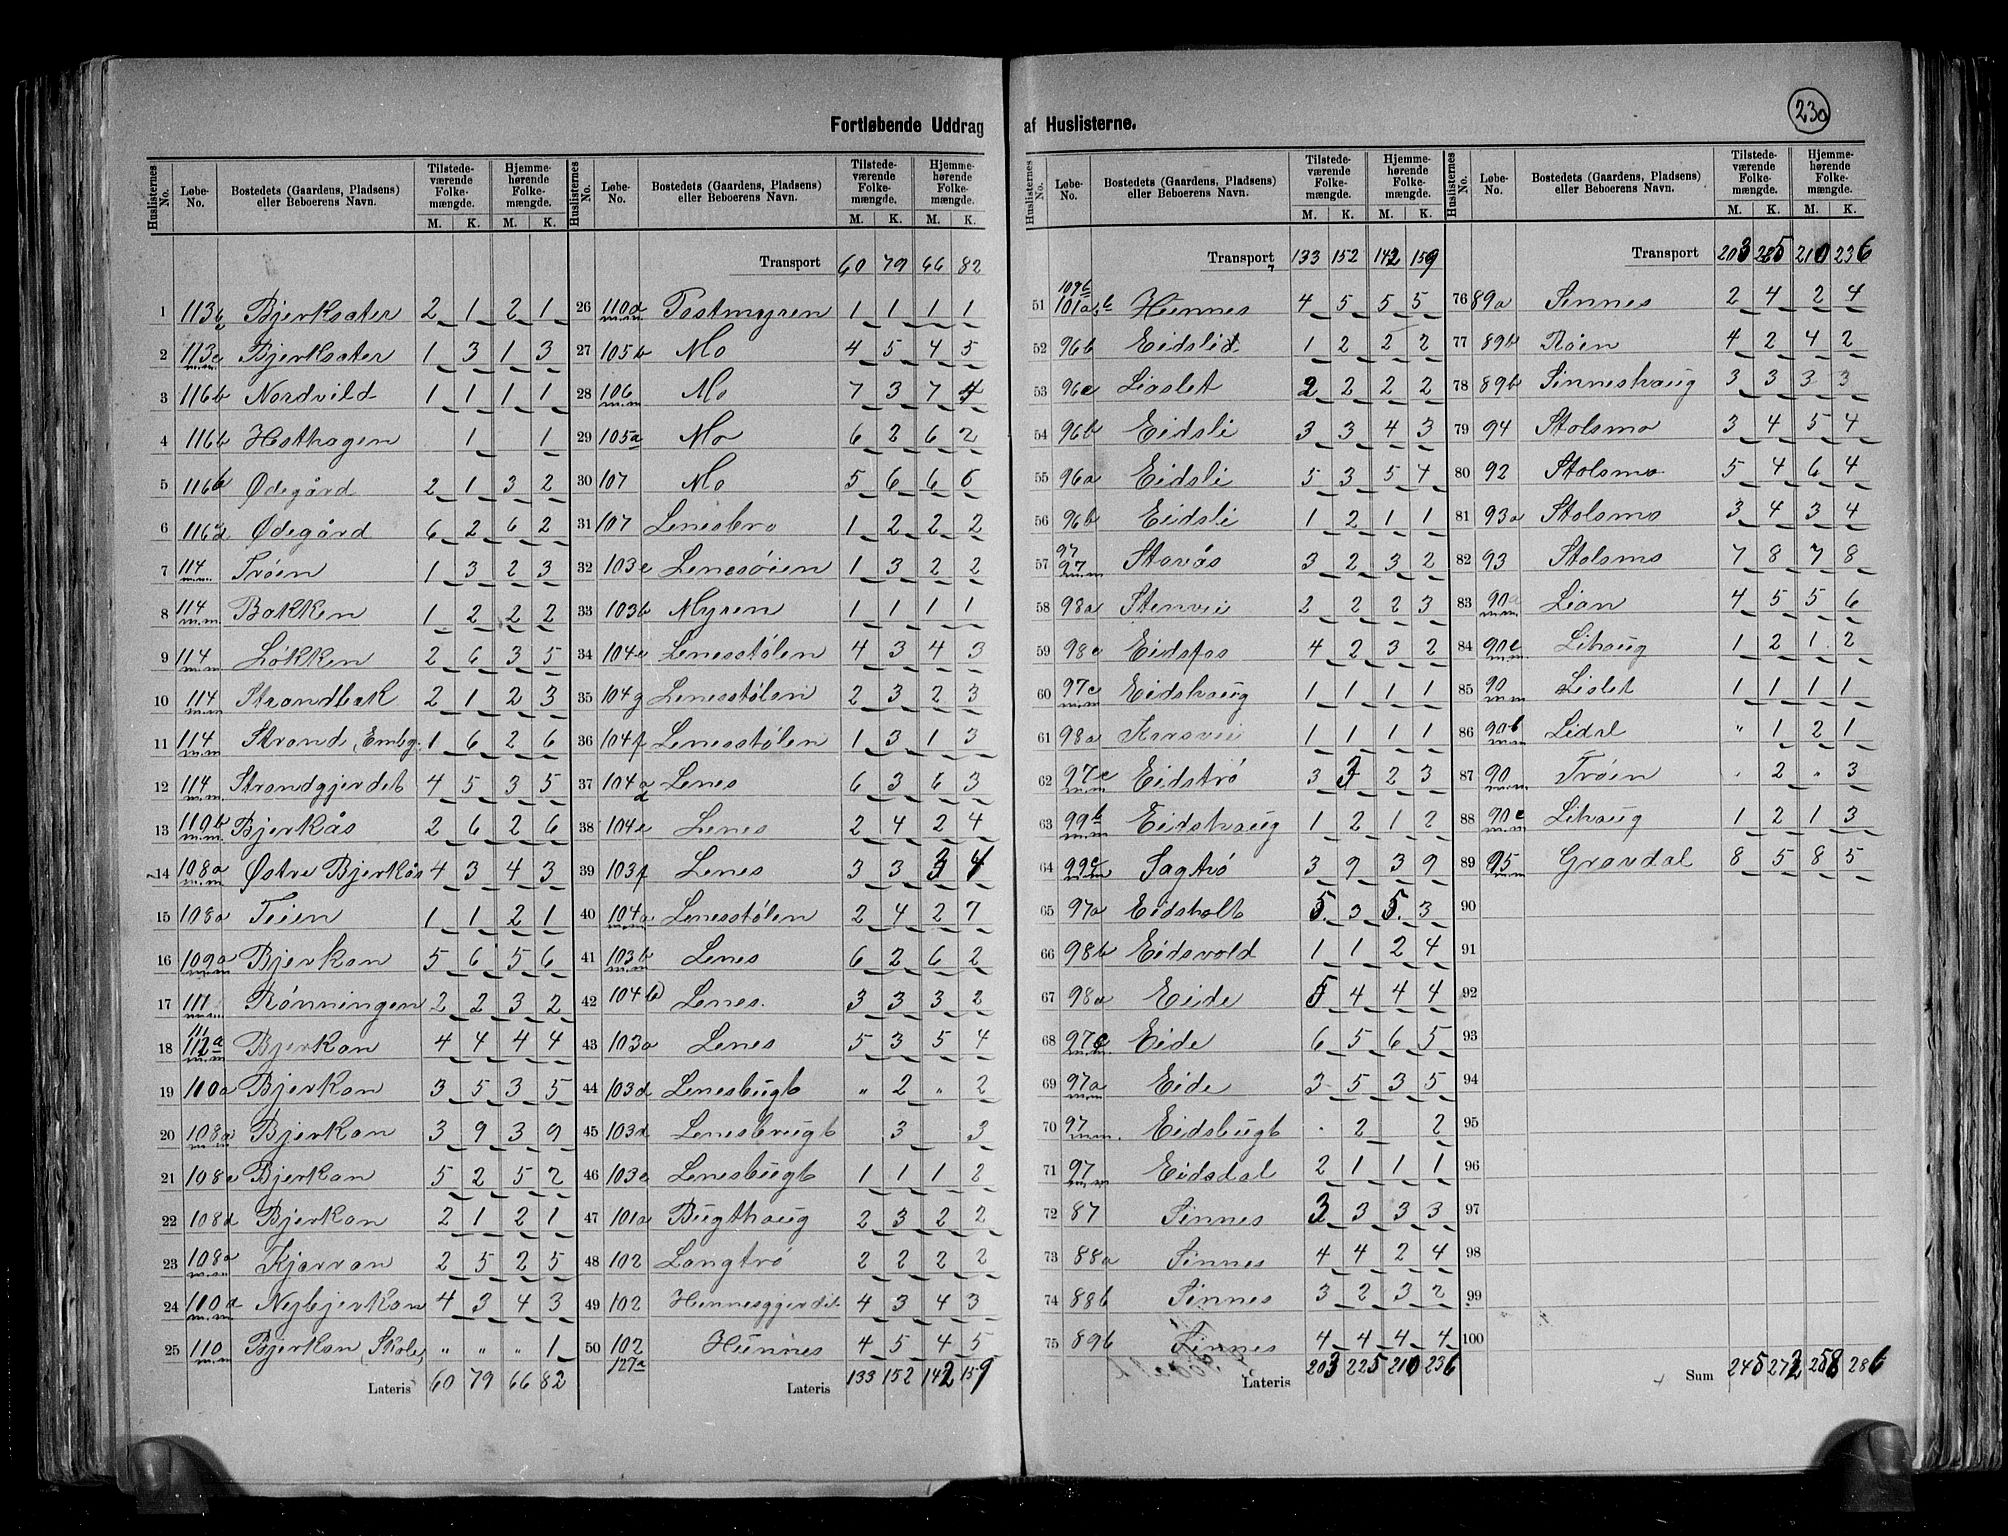 23a
Fortløbende Uddrag af Huslisterne.
Huslisternes No. Løbe-No. Bostedets (Gaardens, Pladsens) eller Beboerens Navn. Tilstedeværende Folkemængde. M. K. Hjemmehørende Folkemængde. M. K.
1 113b Bjerksæter 2 1 2 1
2 113c m.m. Bjerksæter 1 3 1 3
3 116b Nordvild 1 1 1 1
4 116b Hesthagen 1 1
5 116b Ødegård 2 1 3 2
6 116d Ødegård 6 2 6 2
7 114 m.m. Trøen 1 3 2 3
8 114 m.m. Bakken 1 2 2 2
9 114 m.m. Løkken 2 6 3 5
10 114 m.m. Strandbak 2 1 2 3
11 114 m.m. Strand, Embg. 1 6 2 6
12 114 m.m. Strandgjerdet 4 5 3 5
13 110b m.m. Bjerkås 2 6 2 6
14 108a m.m. Østre Bjerkås 4 3 4 3
15 108a Teien 1 1 2 1
16 109a m.m. Bjerkan 5 6 5 6
17 111 m.m. Rønningen 2 2 3 2
18 111 112a m.m. Bjerkan 4 4 4 4
19 110a Bjerkan 3 5 3 5
20 108a m.m. Bjerkan 3 9 3 9
21 108c Bjerkan 5 2 5 2
22 108d Bjerkan 2 1 2 1
23 108a m.m. Kjærran 2 5 2 5
24 110d m.m. Nejbjerkan 4 3 4 3
25 110 m.m. Bjerkan (Skole) " " " 1
Lateris 60 79 66 82
Huslisternes No. Løbe-No. Bostedets (Gaardens, Pladsens) eller Beboerens Navn. Tilstedeværende Folkemængde. M. K. Hjemmehørende Folkemængde. M. K.
Transport 60 79 66 82
26 110d m.m. Tostmyren 1 1 1 1
27 105b Mo 4 5 4 5
28 106 m.m. Mo 7 3 7 4
29 105a Mo 6 2 6 2
30 107 Mo 5 6 6 6
31 107 Lenesbro 1 2 2 2
32 103e Lenesøien 1 3 2 2
33 103b Myren 1 1 1 1
34 104e Lenesstølen 4 3 4 3
35 104g Lenesstølen 2 3 2 3
36 104f Lenesstølen 1 3 1 3
37 104a d Lenes 6 3 6 3
38 104e Lenes 2 4 2 4
39 103f Lenes 3 3 3 4
40 104a m.m. Lenesstølen 2 4 2 7
41 103b m.m. Lenes 6 2 6 2
42 104b Lenes. 3 3 3 2
43 103a Lenes 5 3 5 4
44 103d Lenesbugt " 2 " 2
45 103d Lenesbrugt 3 3
46 103a Lenesbugt 1 1 1 2
47 101a Bugthaug 2 3 2 2
48 102 Langtrø 2 2 2 2
49 102 Hennesgjerdet 4 3 4 3
50 102 127a Hunnes 4 5 4 5
Lateris 133 152 142 159
Huslisternes No. Løbe-No. Bostedets (Gaardens, Pladsens) eller Beboerens Navn. Tilstedeværende Folkemængde. M. K. Hjemmehørende Folkemængde. M. K.
Transport 133 152 142 159
51 109b 101a,b Hunnes 4 5 5 5
52 96b Eidslid 1 2 2 2
53 96c Liaslet 2 2 2 2
54 96b Eidsli 3 3 4 3
55 96a Eidsli 5 3 5 4
56 96b Eidsli 1 2 1 1
57 97 97 m.m Stavås 3 2 3 2
58 98a Stenvei 2 2 2 3
59 98c Eidsfos 4 2 3 2
60 97c m.m Eidshaug 1 1 1 1
61 98a Korsvei 1 1 1 1
62 97c m.m Eidstrø 3 3 2 3
63 99b m.m Eidshaug 1 2 1 2
64 99c m.m Sagtrø 3 9 3 9
65 97a Eidsholt 5 3 5 3
66 98b Eidsvold 1 1 2 4
67 98a Eide 5 4 4 4
68 97c m.m. Eide 6 5 6 5
69 97a m.m Eide 3 5 3 5
70 97 m.m. Eidsbugt . 2 2
71 97 m.m Eidsdal 2 1 1 1
72 87 Sinnes 3 3 3 3
73 88a Sinnes 4 4 2 4
74 88b Sinnes 3 2 3 2
75 89b Sinnes 4 4 4 4
Lateris 203 225 210 236
Huslisternes No. Løbe-No. Bostedets (Gaardens, Pladsens) eller Beboerens Navn. Tilstedeværende Folkemængde. M. K. Hjemmehørende Folkemængde. M. K.
Transport 203 225 210 236
76 89a Sinnes 2 4 2 4
77 89b Røen 4 2 4 2
78 89b Sinneshaug 3 3 3 3
79 94 Stolsmo 3 4 5 4
80 92 Stolsmo 5 4 6 4
81 93a Stolsmo 3 4 3 4
82 93 Stolsmo 7 8 7 8
83 90a m.m Lian 4 5 5 6
84 90c m.m. Lihaug 1 2 1 2
85 90 m.m Lislet 1 1 1 1
86 90b m.m Lidal " 1 2 1
87 90 m.m Trøen " 2 " 3
88 90c m.m. Lihaug 1 2 1 3
89 95 m.m Gravdal 8 5 8 5
90
91
92
93
94
95
96
97
98
99
100
Sum 245 272 258 286